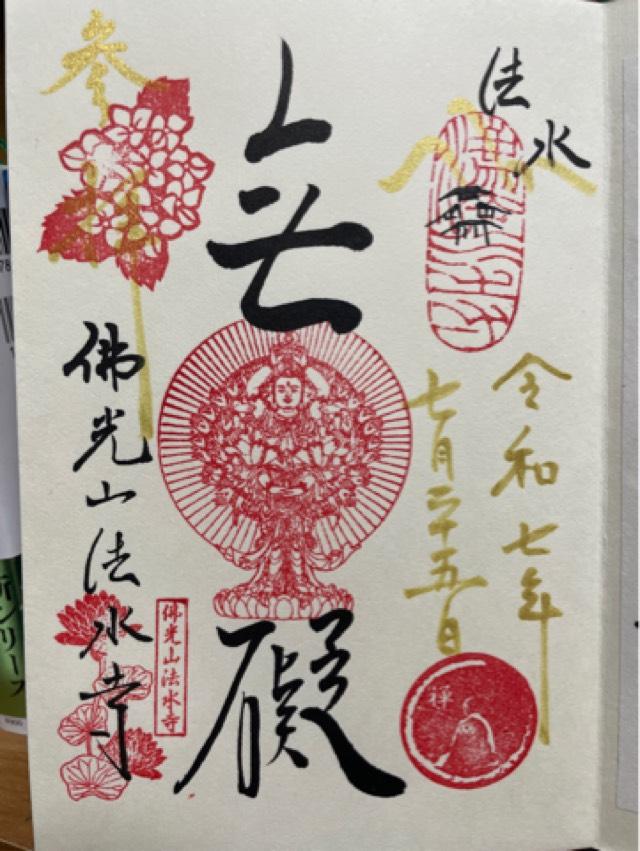 法水
令和七年
七月二十五日
禅
無礙
参拝
佛光山法水寺
佛光山法水寺